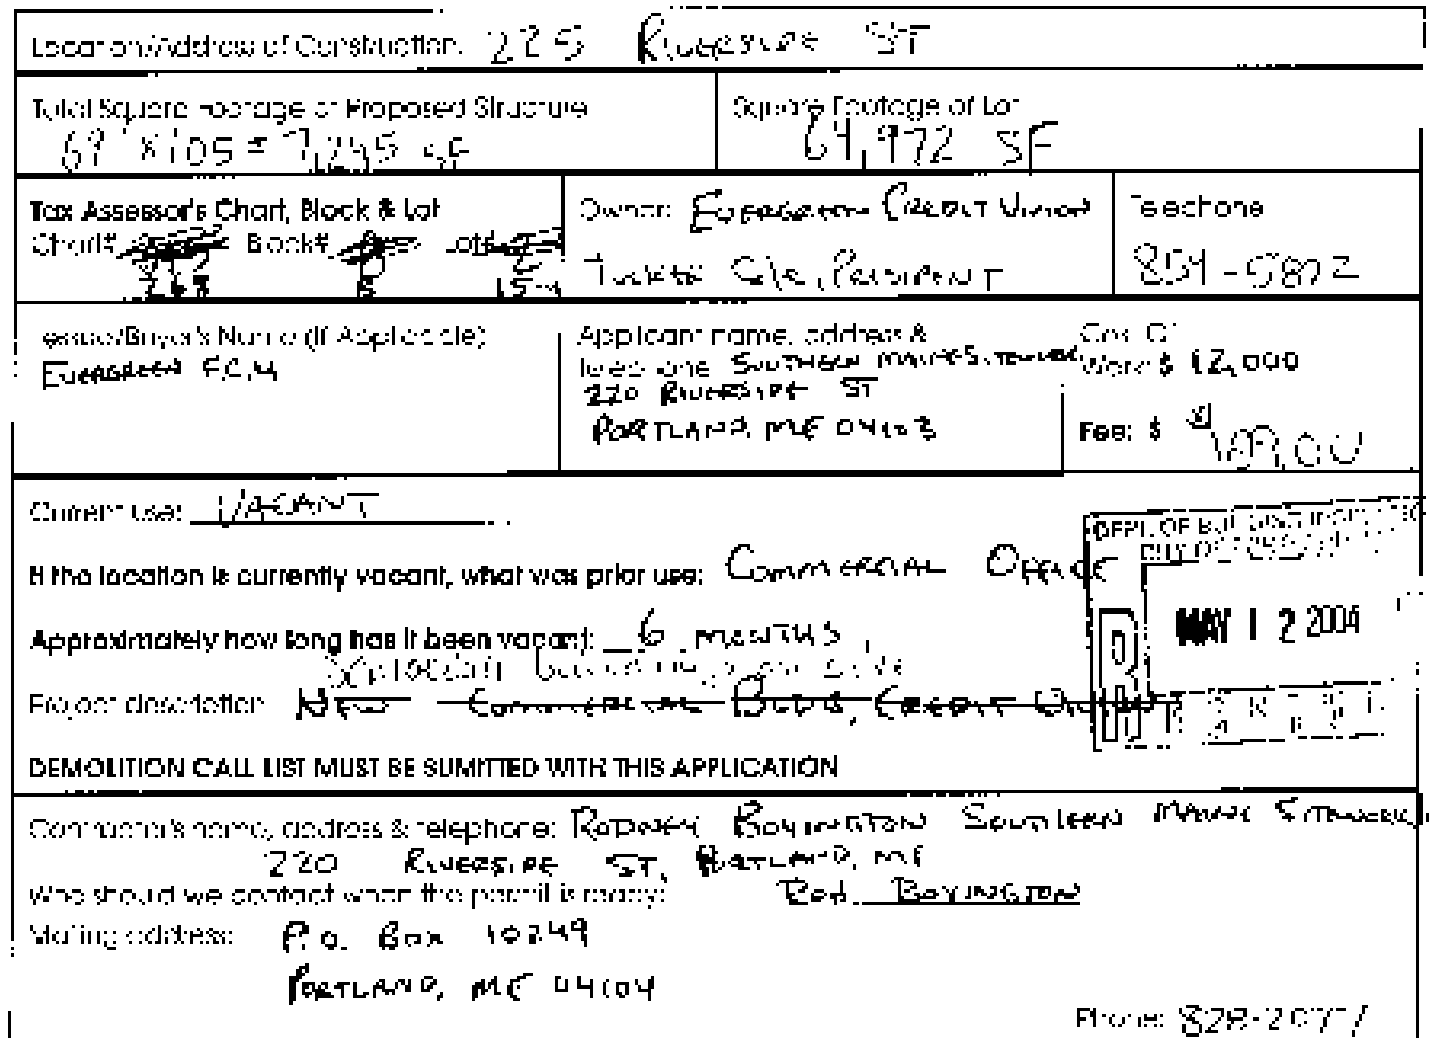 Location/Address of Construction: 225 Riverside ST
Total Square Footage of Proposed Structure
69' x 105 = 7,245 SF
Square Footage of Lot
64,972 SF
Tax Assessor's Chart, Block & Lot
Chart# Block# Lot#
Owner: Evergreen Credit Union
Cole, President
Telephone
Lessee/Buyer's Name (If Applicable)
Evergreen F.C.U
Applicant name, address &
telephone: Southern Maine
220 Riverside ST
Portland, ME 04103
Cost Of
Work: $ 12,000
Fee: $
Current use: VACANT
If the location is currently vacant, what was prior use: Commercial Office
Approximately how long has it been vacant: 6 months
Project description: New Commercial Bldg, Credit Union
DEPT. OF
MAY 12 2004
DEMOLITION CALL LIST MUST BE SUMITTED WITH THIS APPLICATION
Contractor's name, address & telephone: Rodney Boyington Southern Maine
220 Riverside ST, Portland, ME
Who should we contact when the permit is ready: Rod Boyington
Mailing address: P.O. Box 10249
Portland, ME 04104
Phone: 828-2077